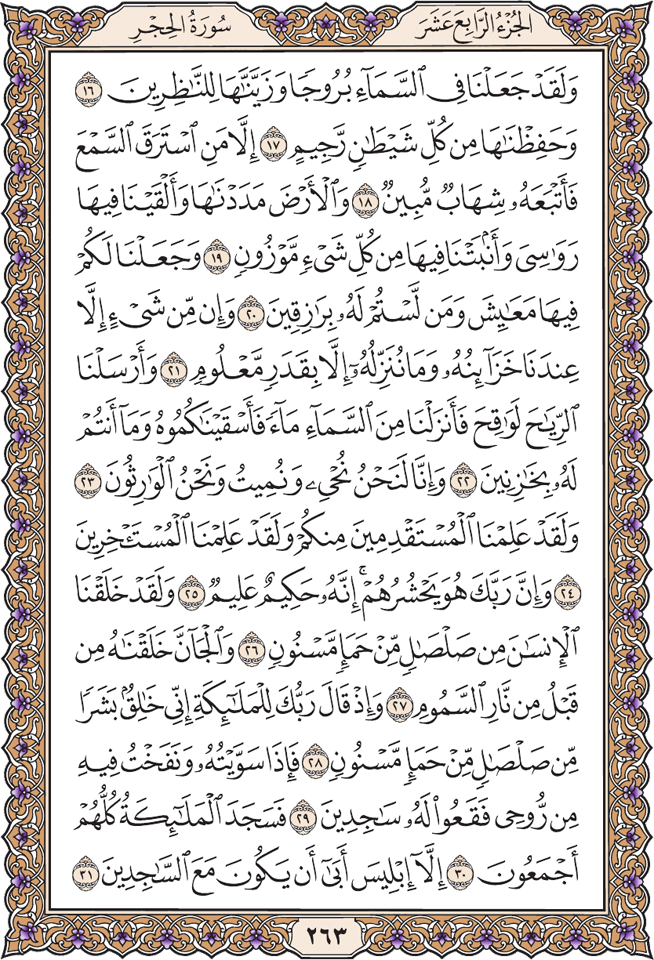 الجُزْءُ الرَّابِعَ عَشَرَ
سُورَةُ الحِجْرِ
وَلَقَدْ جَعَلْنَا فِي السَّمَآءِ بُرُوجًا وَزَيَّنَّٰهَا لِلنَّٰظِرِينَ ١٦
وَحَفِظْنَٰهَا مِن كُلِّ شَيْطَٰنٍ رَّجِيمٍ ١٧ إِلَّا مَنِ ٱسْتَرَقَ ٱلسَّمْعَ
فَأَتْبَعَهُۥ شِهَابٌ مُّبِينٌ ١٨ وَٱلْأَرْضَ مَدَدْنَٰهَا وَأَلْقَيْنَا فِيهَا
رَوَٰسِىَ وَأَنۢبَتْنَا فِيهَا مِن كُلِّ شَىْءٍ مَّوْزُونٍ ١٩ وَجَعَلْنَا لَكُمْ
فِيهَا مَعَٰيِشَ وَمَن لَّسْتُمْ لَهُۥ بِرَٰزِقِينَ ٢٠ وَإِن مِّن شَىْءٍ إِلَّا
عِندَنَا خَزَآئِنُهُۥ وَمَا نُنَزِّلُهُۥٓ إِلَّا بِقَدَرٍ مَّعْلُومٍ ٢١ وَأَرْسَلْنَا
ٱلرِّيَٰحَ لَوَٰقِحَ فَأَنزَلْنَا مِنَ ٱلسَّمَآءِ مَآءً فَأَسْقَيْنَٰكُمُوهُ وَمَآ أَنتُمْ
لَهُۥ بِخَٰزِنِينَ ٢٢ وَإِنَّا لَنَحْنُ نُحْىِۦ وَنُمِيتُ وَنَحْنُ ٱلْوَٰرِثُونَ ٢٣
وَلَقَدْ عَلِمْنَا ٱلْمُسْتَقْدِمِينَ مِنكُمْ وَلَقَدْ عَلِمْنَا ٱلْمُسْتَـْٔخِرِينَ
٢٤ وَإِنَّ رَبَّكَ هُوَ يَحْشُرُهُمْ ۚ إِنَّهُۥ حَكِيمٌ عَلِيمٌ ٢٥ وَلَقَدْ خَلَقْنَا
ٱلْإِنسَٰنَ مِن صَلْصَٰلٍ مِّنْ حَمَإٍ مَّسْنُونٍ ٢٦ وَٱلْجَآنَّ خَلَقْنَٰهُ مِن
قَبْلُ مِن نَّارِ ٱلسَّمُومِ ٢٧ وَإِذْ قَالَ رَبُّكَ لِلْمَلَٰٓئِكَةِ إِنِّى خَٰلِقٌۢ بَشَرًا
مِّن صَلْصَٰلٍ مِّنْ حَمَإٍ مَّسْنُونٍ ٢٨ فَإِذَا سَوَّيْتُهُۥ وَنَفَخْتُ فِيهِ
مِن رُّوحِى فَقَعُوا۟ لَهُۥ سَٰجِدِينَ ٢٩ فَسَجَدَ ٱلْمَلَٰٓئِكَةُ كُلُّهُمْ
أَجْمَعُونَ ٣٠ إِلَّآ إِبْلِيسَ أَبَىٰٓ أَن يَكُونَ مَعَ ٱلسَّٰجِدِينَ ٣١
٢٦٣